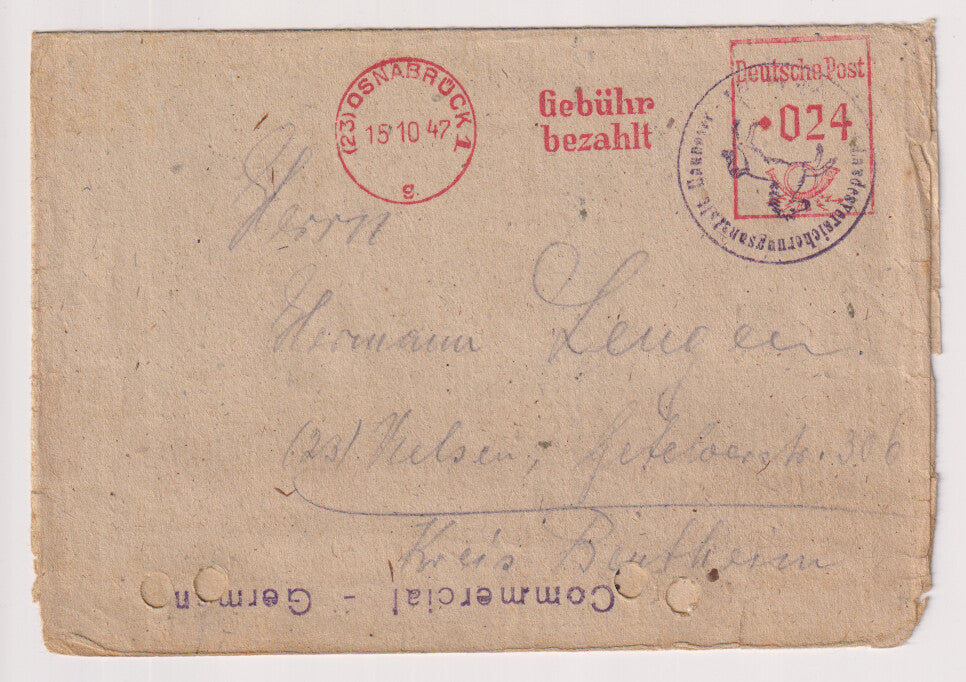 (23) OSNABRÜCK 1
15 10 47
g
Gebühr
bezahlt
Deutsche Post
024
Landesversicherungsanstalt Hannover
Herrn
Hermann Lengen
(23) Velsen, 306
Kreis Bentheim
Commercial - German